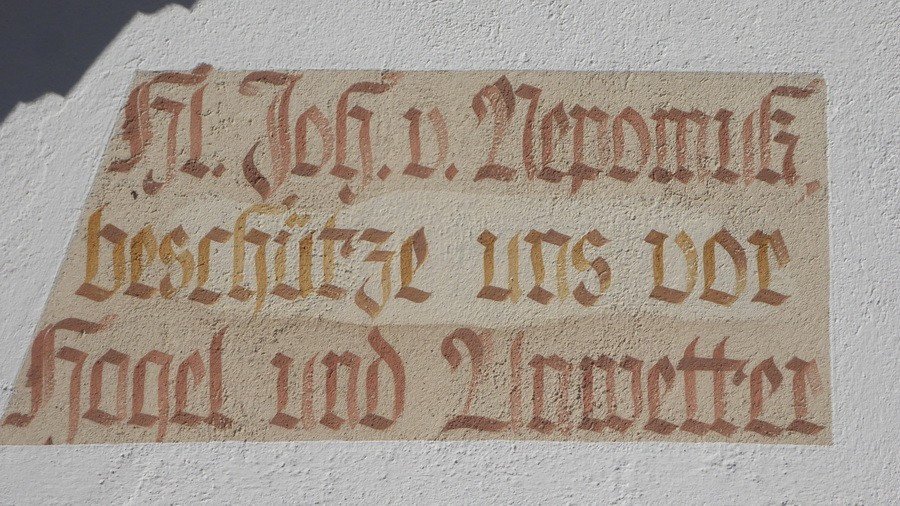 Hl. Joh. v. Nepomuk.
beschütze uns vor
Hagel und Unwetter